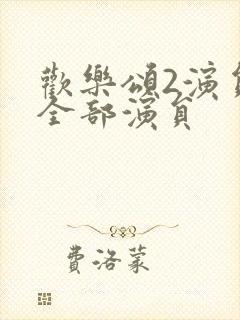 歡樂頌2演員
全部演員
費洛蒙